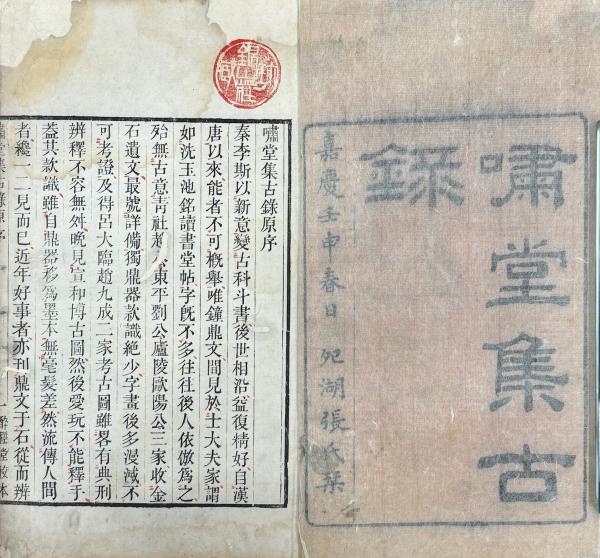 嘯堂集古
錄
嘉慶壬申春日宛湖張氏栞
嘯堂集古錄原序
秦李斯以新意變古科斗書後世相沿益復精好自漢
唐以來能者不可概舉唯鐘鼎文間見於士大夫家謂
如沈玉池銘讀書堂帖字旣不多往往後人依倣爲之
殆無古意靑社趙公東平劉公廬陵歐陽公三家收金
石遺文最號詳備獨鼎器款識絕少字畫後多漫滅不
可考證及得呂大臨趙九成二家考古圖雖畧有典刑
辨釋不容無舛晚見宣和博古圖然後愛玩不能釋手
葢其款識雖自鼎器移爲墨本無毫髮差然流傳人間
者纔一二見而巳近年好事者亦刊鼎文于石從而辨
嘯堂集古錄原序 一 醉經堂校本